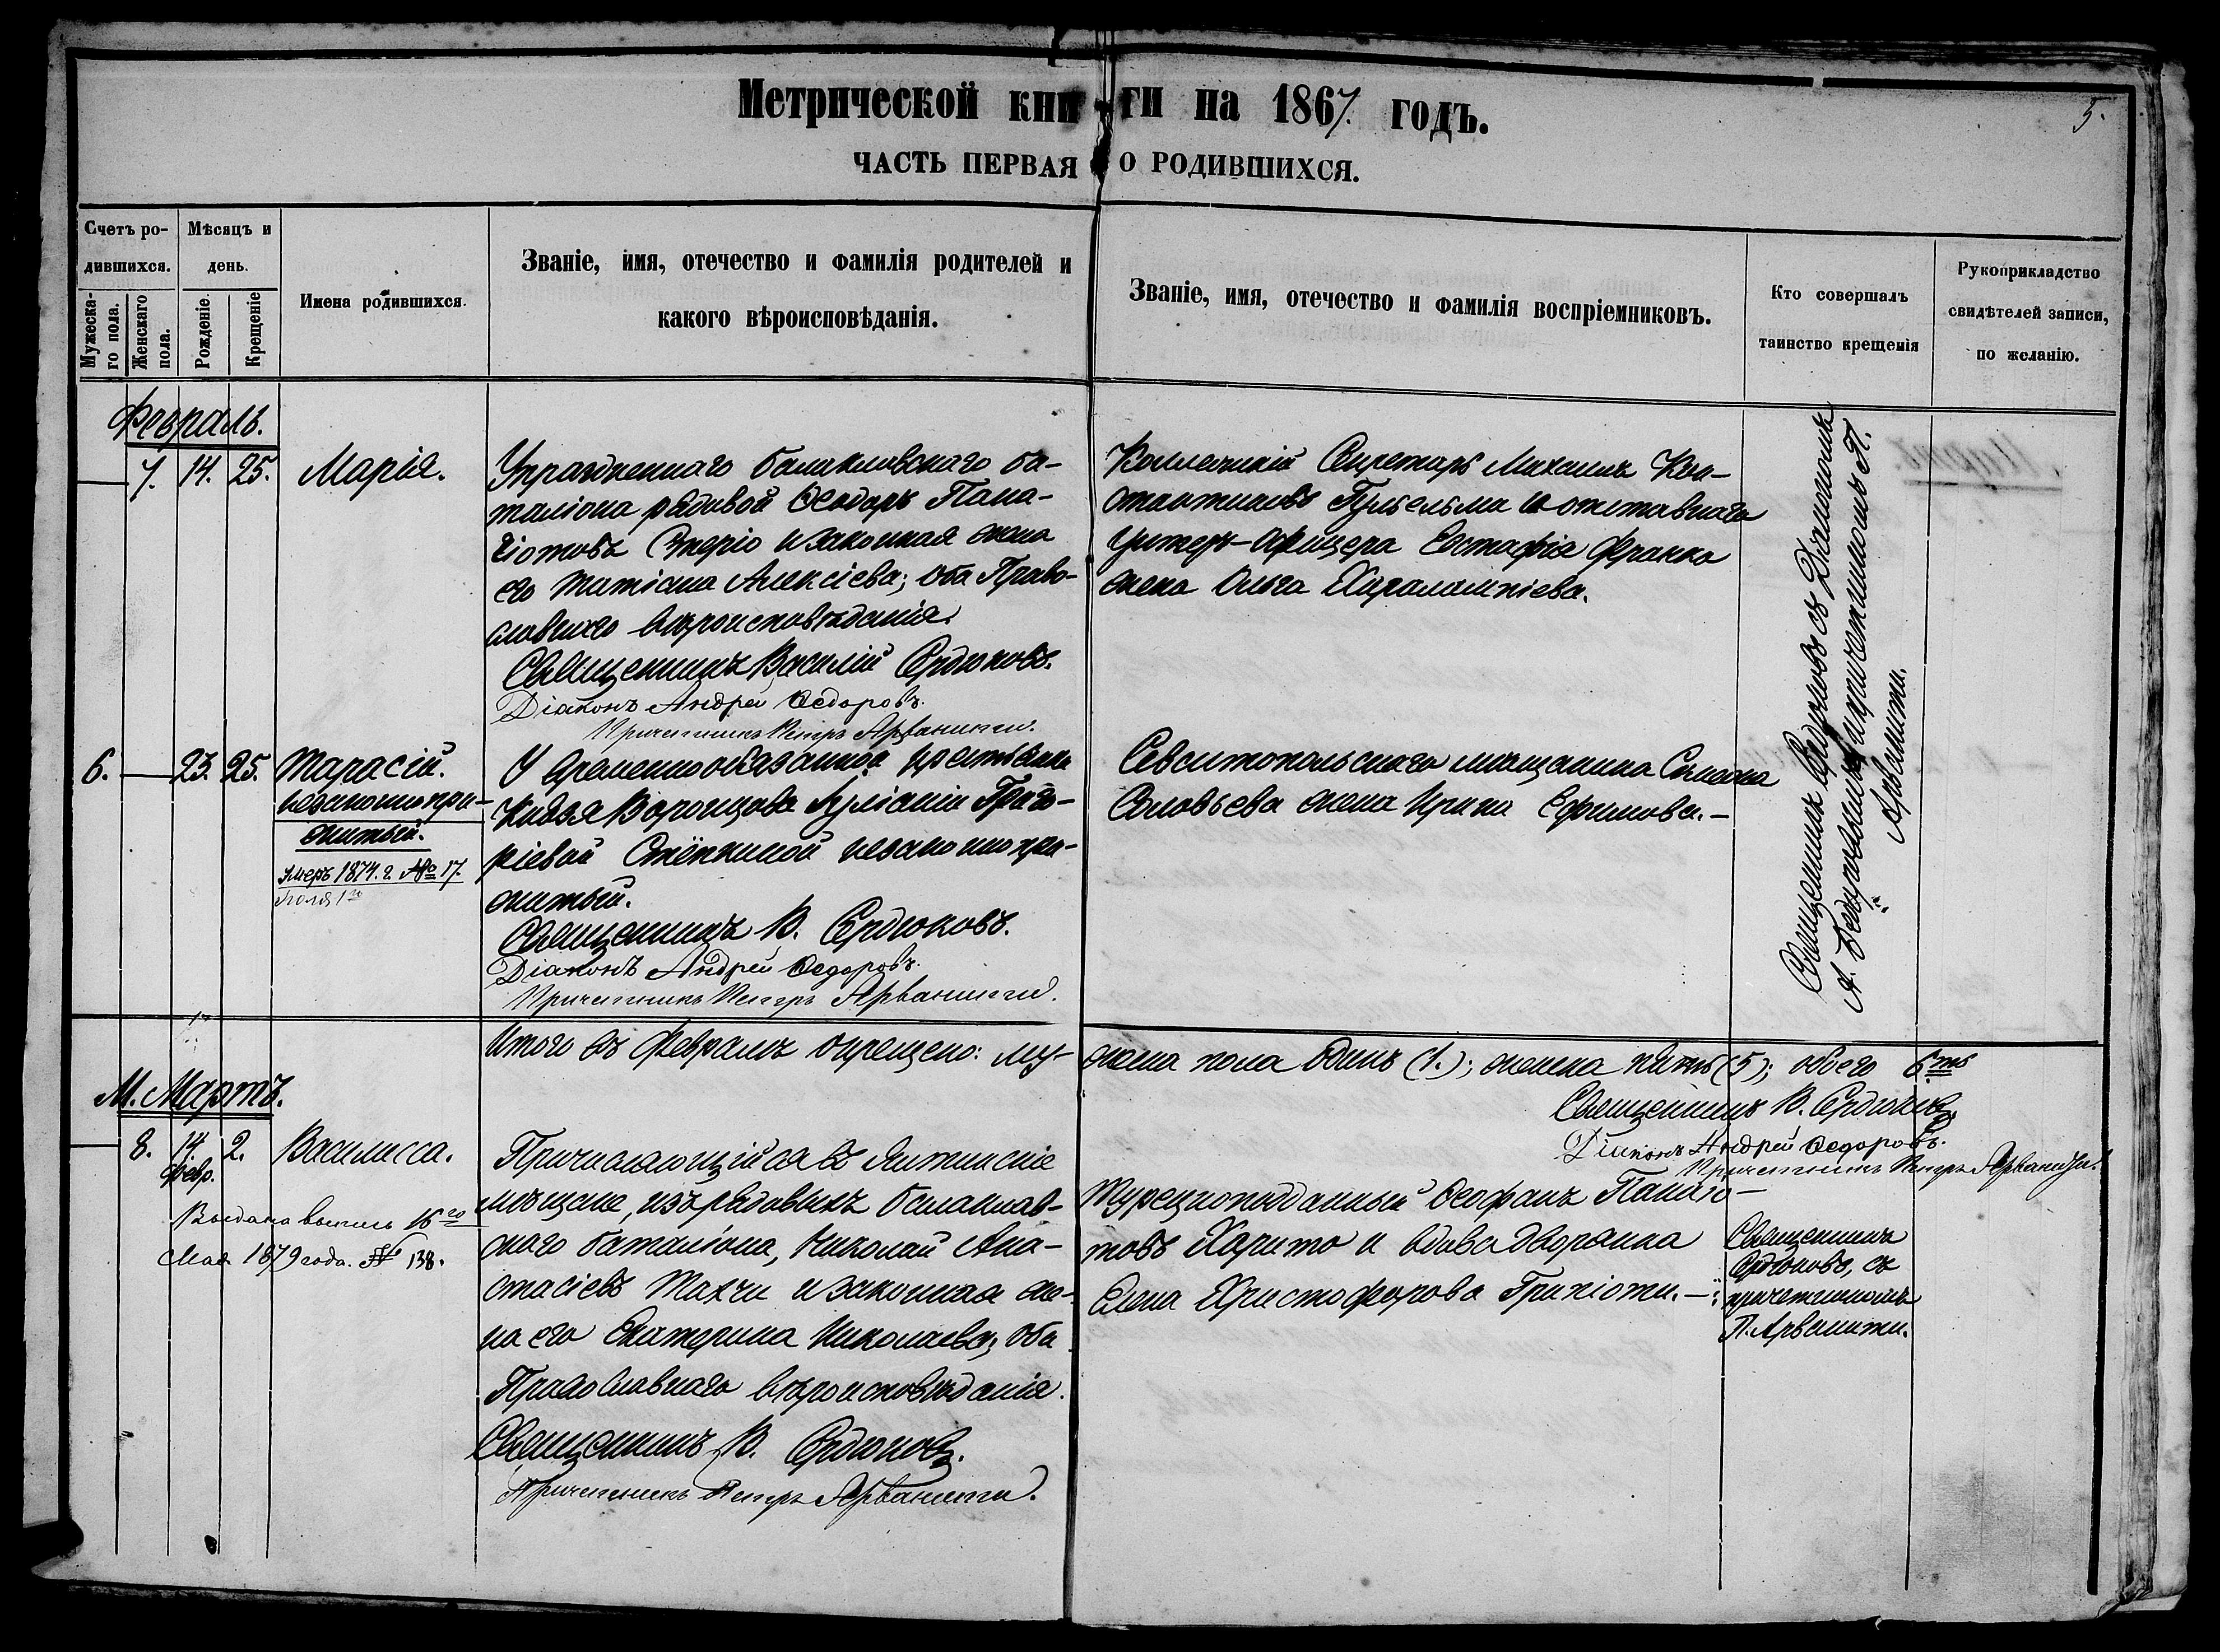 Метрической книги на 1867. годъ.
5.
ЧАСТЬ ПЕРВАЯ О РОДИВШИХСЯ.
Счетъ ро-
дившихся.
Мужеска-
го пола.
Женскаго
пола.
Мѣсяцъ и
день.
Рожденіе.
Крещеніе
Имена родившихся.
Званіе, имя, отечество и фамилія родителей и
какого вѣроисповѣданія.
Званіе, имя, отечество и фамилія воспріемниковъ.
Кто совершалъ
таинство крещенія
Рукоприкладство
свидѣтелей записи,
по желанію.
Февраль.
7. 14. 25. Марія.
Упраздненнаго балаклавскаго ба-
таліона рядовой Ѳеодоръ Пана-
гіотовъ Сперіо и законная жена
его Татіана Алексіева; оба Право-
славнаго вѣроисповѣданія.
Священникъ Василій Сердюковъ.
Діаконъ Андрей Ѳедоровъ.
Причетникъ Петръ Арванити.
Коллежскій Секретарь Михаилъ Кон-
стантиновъ и отставнаго
Унтеръ-Офицера Евстафія Франко
жена Ольга Харалампіева.
Священникъ Сердюковъ съ Діакономъ
А. и причетникомъ П.
Арванити.
6. 23. 25. Тарасій.
незаконнопри-
житый.
умеръ 1874. г. № 17.
У временнообязанной крестьянки
Князя Воронцова Григо-
ріевой Стёпкиной незаконнопри-
житый.
Священникъ В. Сердюковъ.
Діаконъ Андрей Ѳедоровъ.
Причетникъ Петръ Арванити.
Севастопольскаго мѣщанина Симеона
Соловьева жена Ирина Ефимова.—
Итого въ Февралѣ окрещено: му-
жеска пола одинъ (1.); женска пять (5); обоего 6.ть
Священникъ В. Сердюковъ.
Діаконъ Андрей Ѳедоровъ.
Причетникъ Петръ Арванити.
М. Мартъ.
8. 14. 2. Василисса.
Февр.
Выдана выпись 16го
Мая 1879 года. № 138.
Причисляющійся въ Ялтинскіе
мѣщане, изъ рядовыхъ балаклав-
скаго баталіона, Николай Ана-
стасіевъ Тахчи и законная же-
на его Екатерина Николаева; оба
Православнаго вѣроисповѣданія.
Священникъ В. Сердюковъ.
Причетникъ Петръ Арванити.
Турецкоподданный Ѳеофанъ Панагіо-
товъ Харито и вдова дворянка
Елена Христофорова Грипіоти.—
Священникъ
Сердюковъ, съ
причетникомъ
П. Арванити.